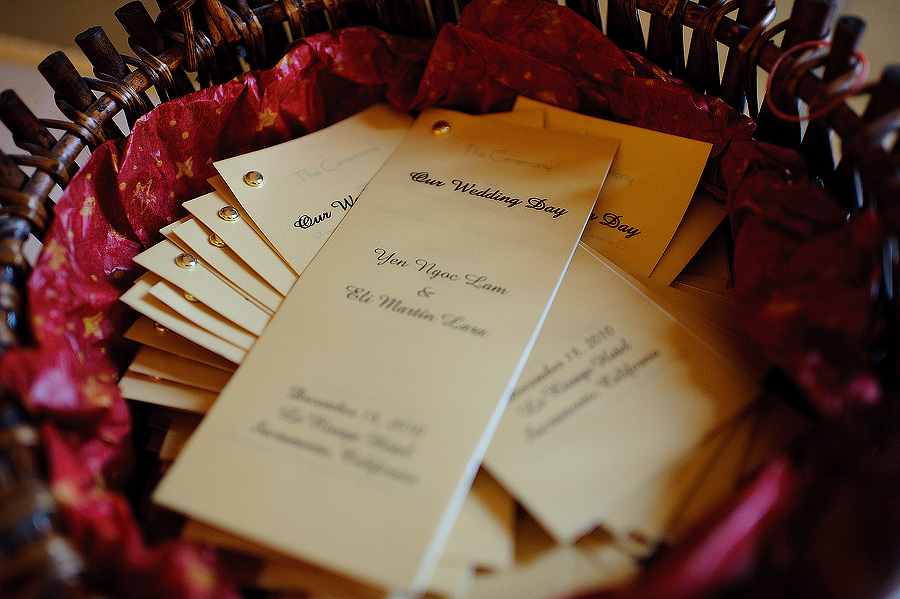 The Ceremony
Our Wedding Day
Yen Ngoc Lam
&
Eli Martin Lara
December 18, 2010
Le Rivage Hotel
Sacramento, California
The Ceremony
Our W
Day
December 18, 2010
Le Rivage Hotel
Sacramento, California